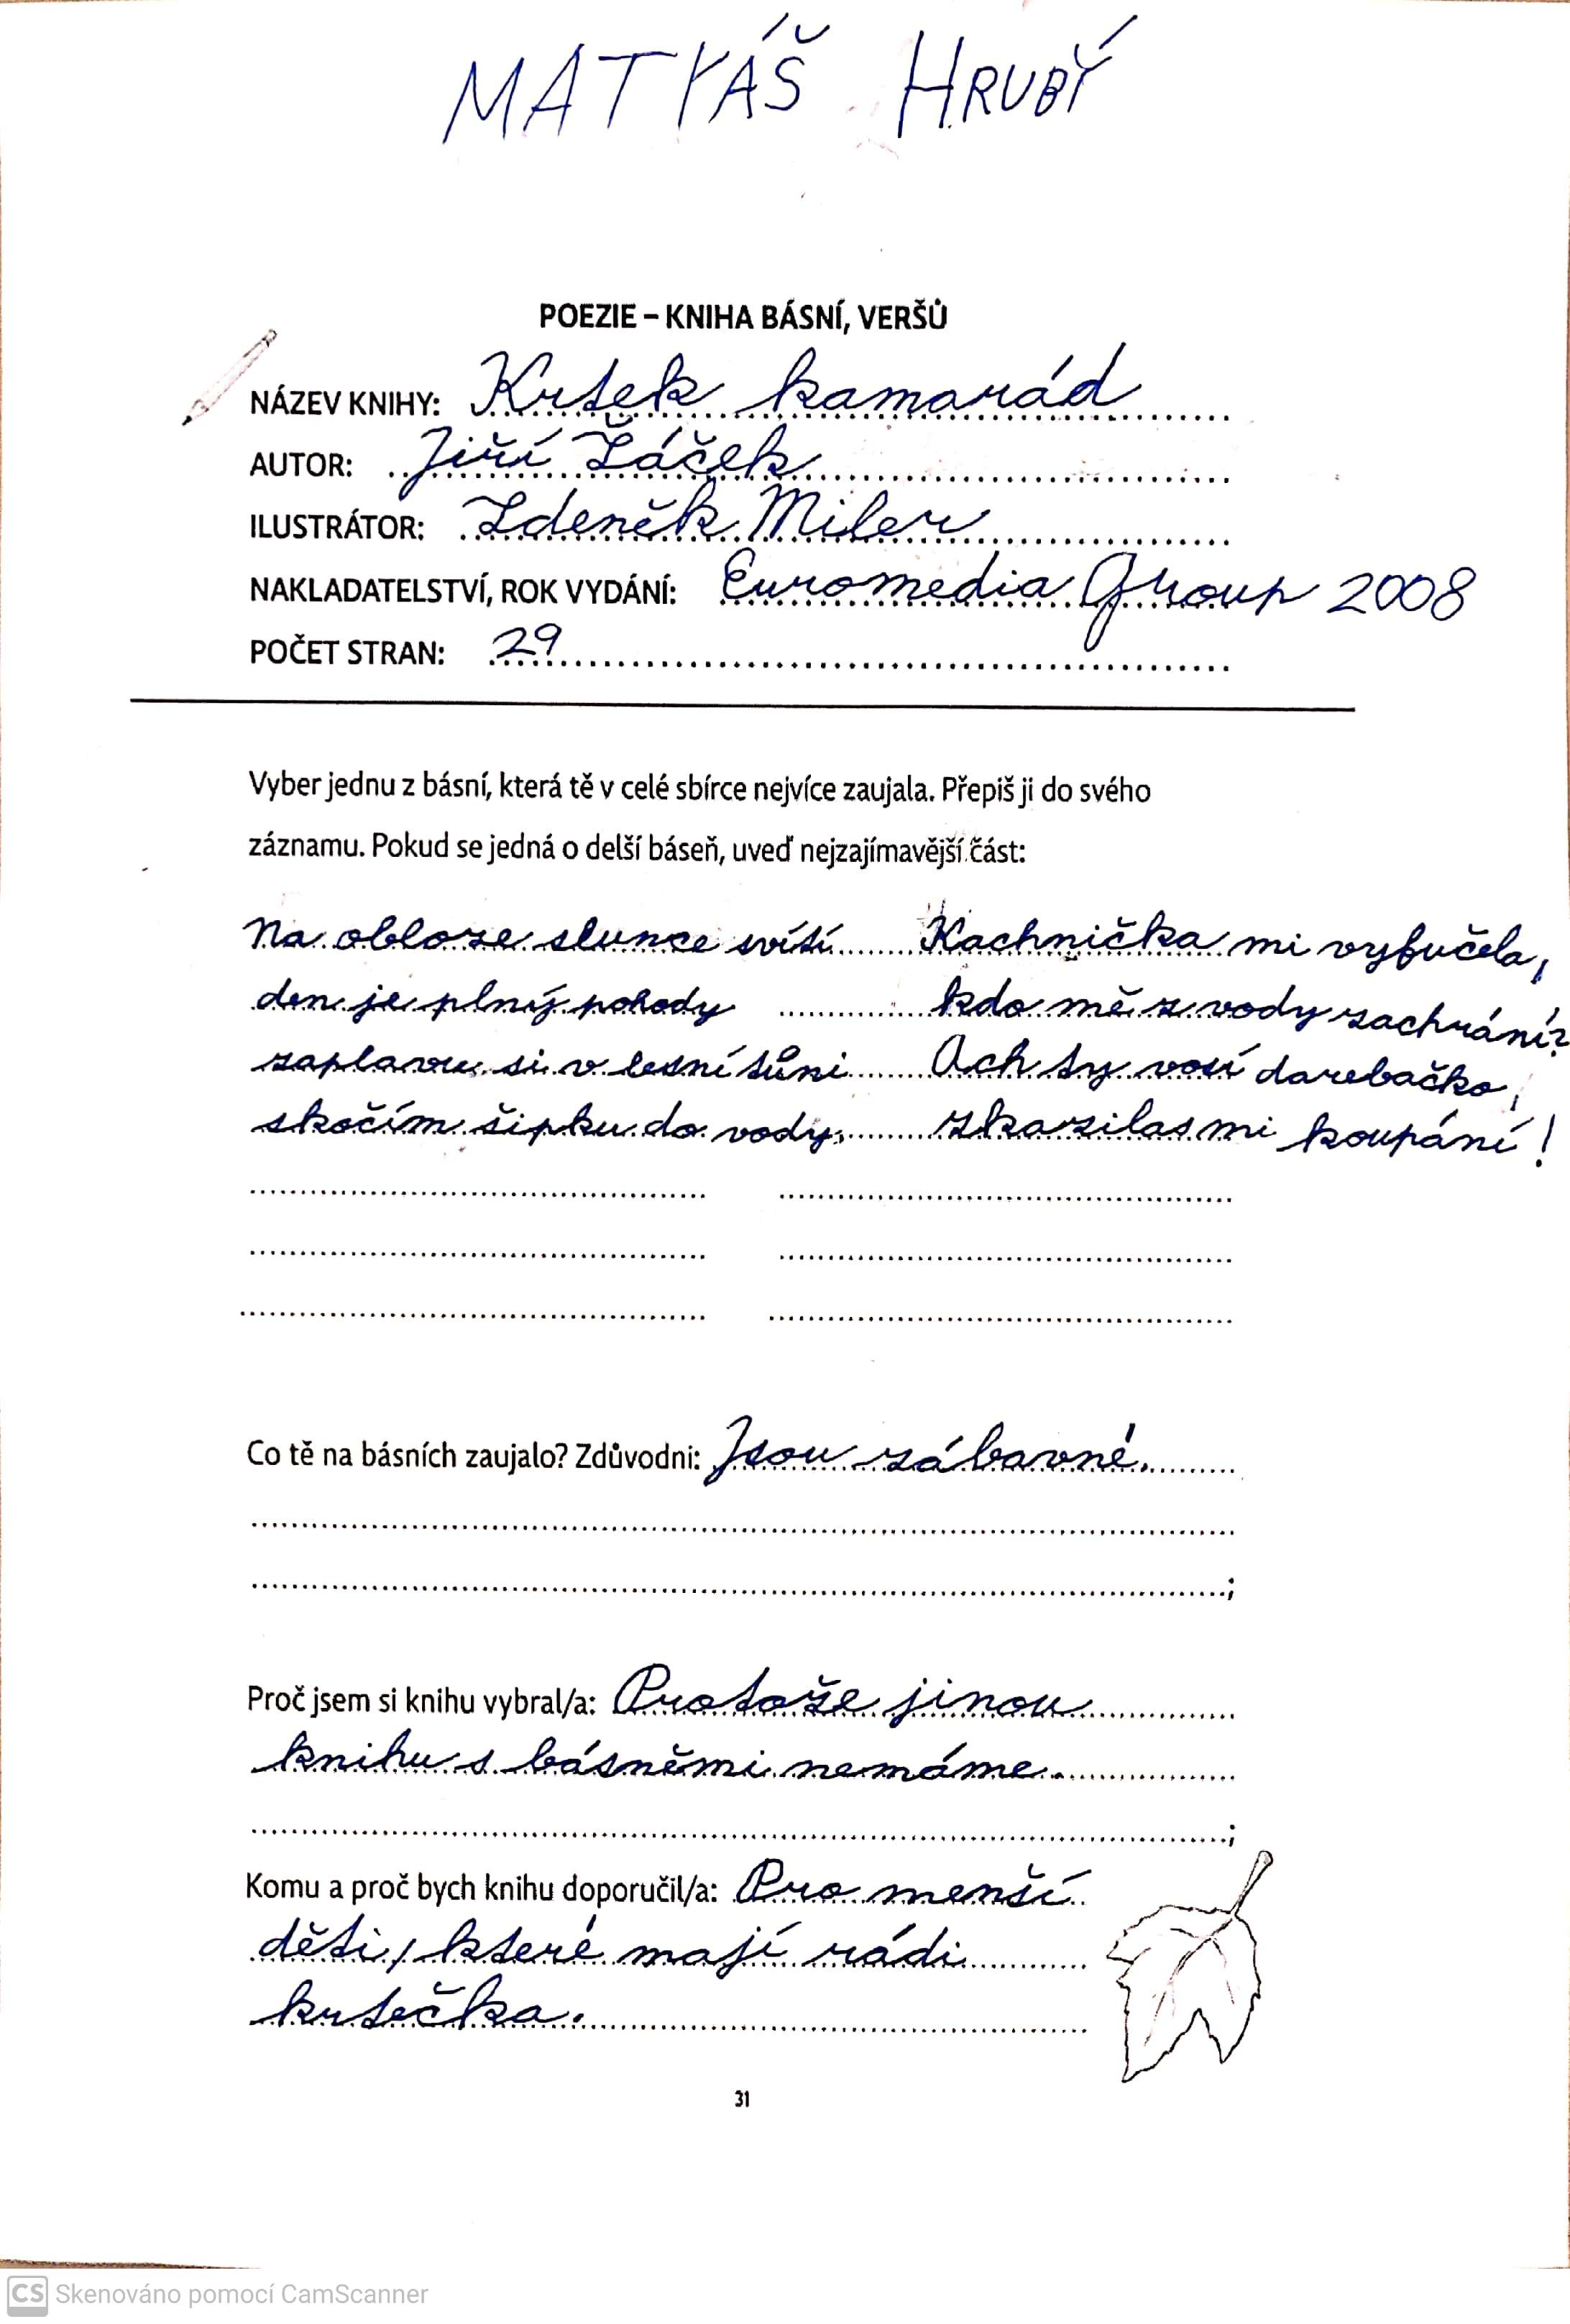 MATYÁŠ HRUBÝ
POEZIE – KNIHA BÁSNÍ, VERŠŮ
NÁZEV KNIHY: Krtek kamarád
AUTOR: Jiří Žáček
ILUSTRÁTOR: Zdeněk Miler
NAKLADATELSTVÍ, ROK VYDÁNÍ: Euromedia Group 2008
POČET STRAN: 29
Vyber jednu z básní, která tě v celé sbírce nejvíce zaujala. Přepiš ji do svého
záznamu. Pokud se jedná o delší báseň, uveď nejzajímavější část:
Na obloze slunce svítí
den je plný pohody
zaplavu si v lesní tůni
skočím šipku do vody.
Kachnička mi vyfučela,
kdo mě z vody zachrání?
Ach ty vosí darebačko,
zkazilas mi koupání!
Co tě na básních zaujalo? Zdůvodni: Jsou zábavné.
;
Proč jsem si knihu vybral/a: Protože jinou
knihu s básněmi nemáme.
;
Komu a proč bych knihu doporučil/a: Pro menší
děti, které mají rádi
krtečka.
31
CS Skenováno pomocí CamScanner